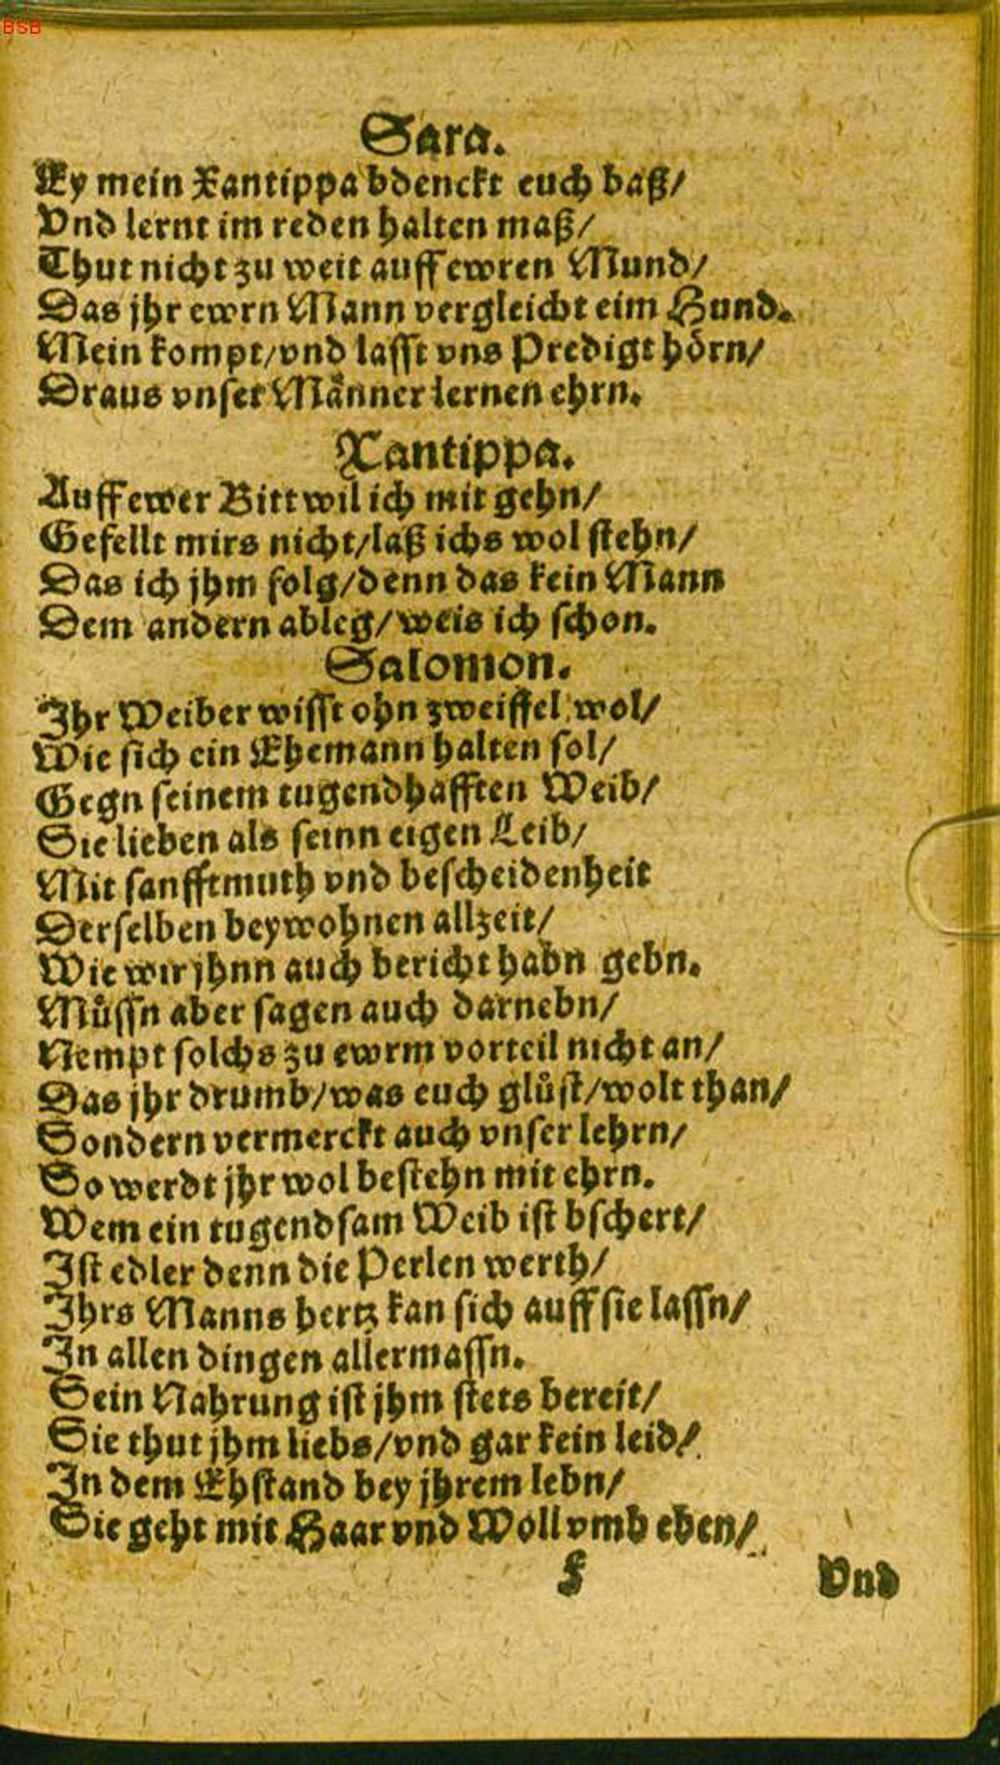 BSB
Sara.
Ey mein Xantippa bdenckt euch baß/
Vnd lernt im reden halten maß/
Thut nicht zu weit auff ewren Mund/
Das jhr ewrn Mann vergleicht eim Hund.
Mein kompt/vnd lasst vns Predigt hörn/
Draus vnser Männer lernen ehrn.
Xantippa.
Auff ewer Bitt wil ich mit gehn/
Gefellt mirs nicht/laß ichs wol stehn/
Das ich jhm folg/denn das kein Mann
Dem andern ableg/weis ich schon.
Salomon.
Ihr Weiber wisst ohn zweiffel wol/
Wie sich ein Ehemann halten sol/
Gegn seinem tugendhafften Weib/
Sie lieben als seinn eigen Leib/
Mit sanfftmuth vnd bescheidenheit
Derselben beywohnen allzeit/
Wie wir jhnn auch bericht habn gebn.
Müssn aber sagen auch darnebn/
Nempt solchs zu ewrm vorteil nicht an/
Das jhr drumb/was euch glüst/wolt than/
Sondern vermerckt auch vnser lehrn/
So werdt jhr wol bestehn mit ehrn.
Wem ein tugendsam Weib ist bschert/
Ist edler denn die Perlen werth/
Ihrs Manns hertz kan sich auff sie lassn/
In allen dingen allermassn.
Sein Nahrung ist jhm stets bereit/
Sie thut jhm liebs/vnd gar kein leid/
In dem Ehstand bey jhrem lebn/
Sie geht mit Haar vnd Woll vmb eben/
Vnd